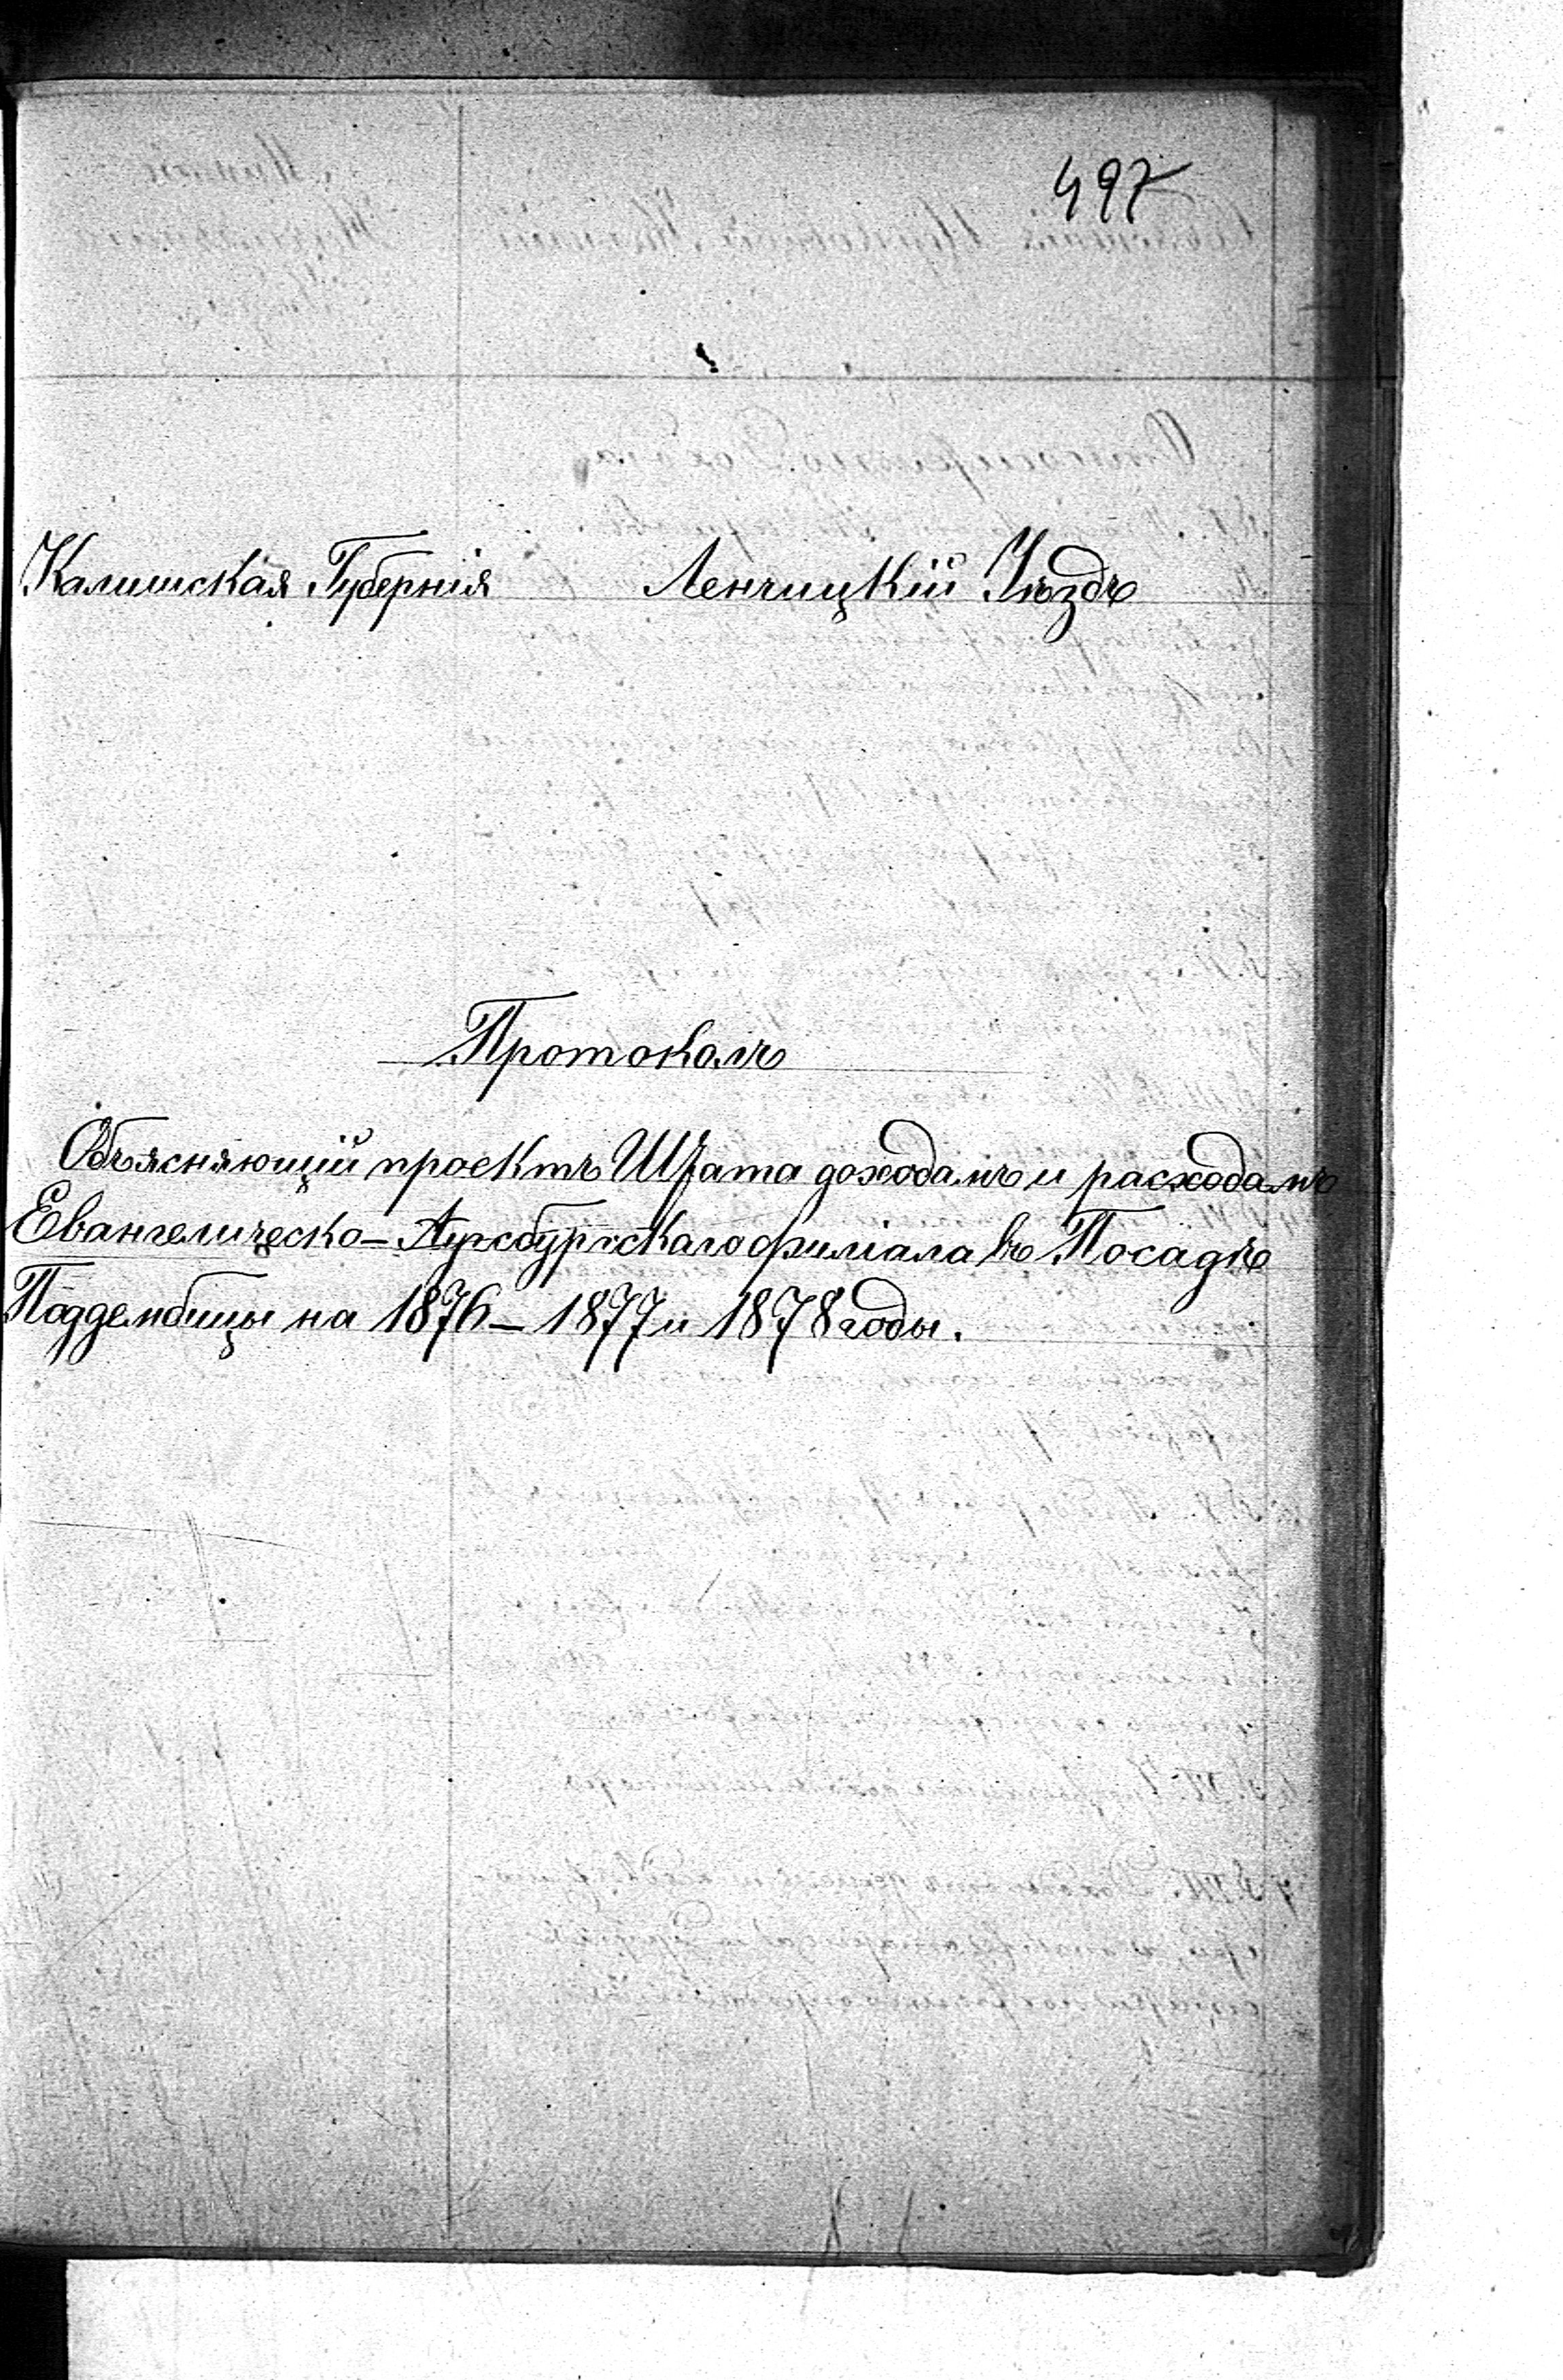 497
Калишская Губернія Ленчицкій Уѣздъ
Протоколъ
Объясняющій проектъ Штата доходамъ и расходамъ
Евангелическо-Аугсбургскаго филіала въ Посадѣ
Поддембицы на 1876-1877 и 1878 годы.